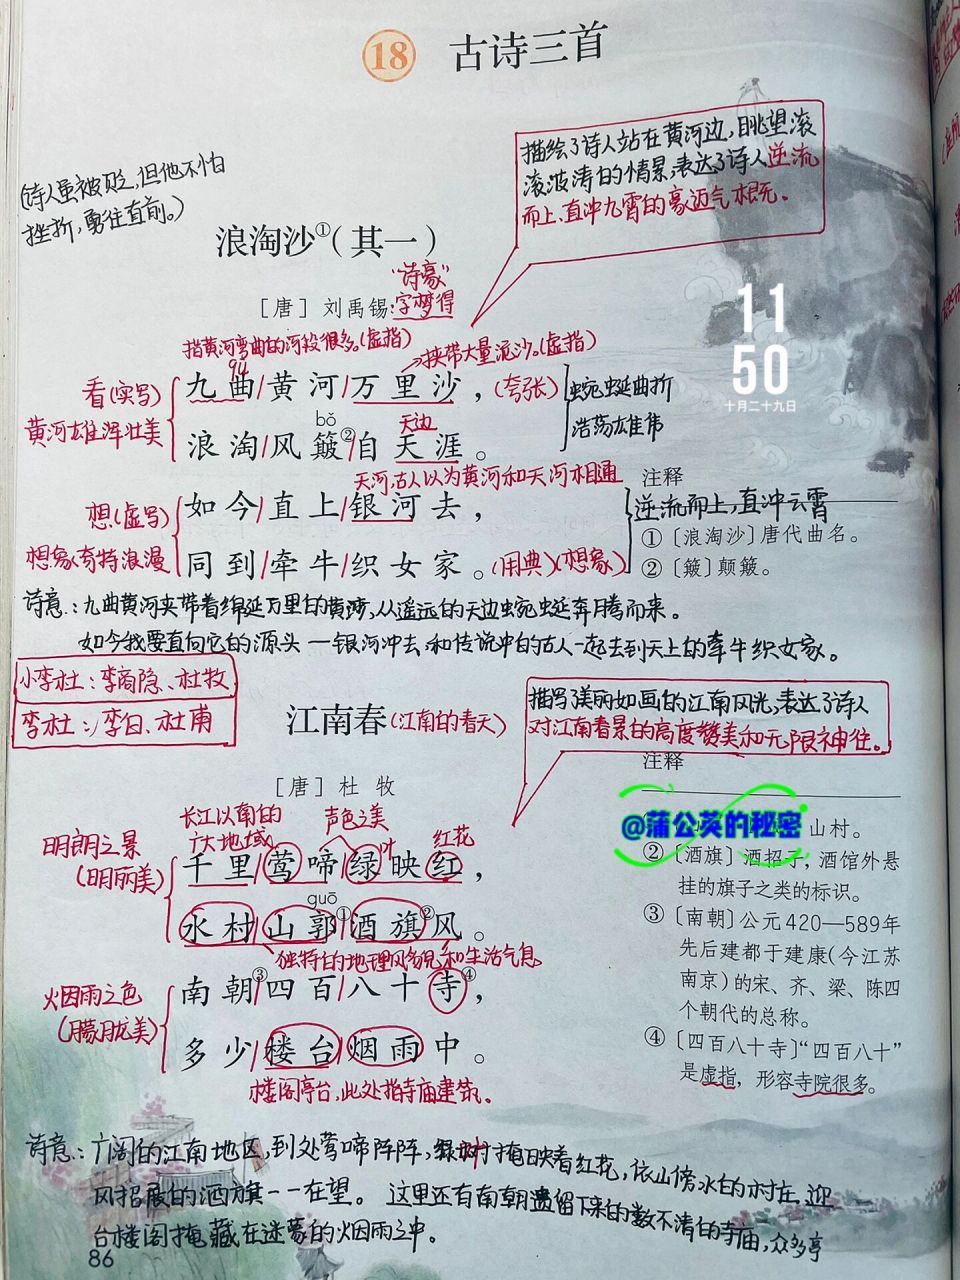 18 古诗三首
(诗人虽被贬,但他不怕
挫折,勇往直前。)
描绘了诗人站在黄河边,眺望滚
滚波涛的情景,表达了诗人逆流
而上、直冲九霄的豪迈气概。
浪淘沙①(其一)
“诗豪”
[唐] 刘禹锡:字梦得
指黄河弯曲的河段很多。(虚指)
→挟带大量泥沙。(虚指)
11
50
十月二十九日
看(实写)
黄河雄浑壮美
九曲/黄河/万里沙,(夸张)
蜿蜒曲折
浩荡雄伟
bǒ
天边
浪淘/风簸②/自天涯。
天河,古人以为黄河和天河相通
注释
想(虚写)
想象奇特浪漫
如今/直上/银河去,
逆流而上,直冲云霄
①〔浪淘沙〕唐代曲名。
同到/牵牛/织女家。(用典)(想象)
②〔簸〕颠簸。
诗意:九曲黄河夹带着绵延万里的黄沙,从遥远的天边蜿蜒奔腾而来。
如今我要直向它的源头—银河冲去,和传说中的古人一起去到天上的牵牛织女家。
小李杜:李商隐、杜牧
李杜:李白、杜甫
江南春(江南的春天)
描写了美丽如画的江南风光,表达了诗人
对江南春景的高度赞美和无限神往。
注释
[唐] 杜 牧
长江以南的
广大地域。
声色之美
叶
红花
明朗之景
(明丽美)
千里/莺啼/绿映红,
guō
水村/山郭①/酒旗②风。
独特的地理风貌和生活气息
@蒲公英的秘密
山村。
②〔酒旗〕酒招子,酒馆外悬
挂的旗子之类的标识。
③〔南朝〕公元420—589年
先后建都于建康(今江苏
南京)的宋、齐、梁、陈四
个朝代的总称。
④〔四百八十寺〕“四百八十”
是虚指,形容寺院很多。
烟雨之色
(朦胧美)
南朝③/四百/八十寺④,
多少/楼台/烟雨中。
楼阁亭台,此处指寺庙建筑。
诗意:广阔的江南地区,到处莺啼阵阵,绿树掩映着红花,依山傍水的村庄、迎
风招展的酒旗一一在望。这里还有南朝遗留下来的数不清的寺庙,众多亭
台楼阁掩藏在迷蒙的烟雨之中。
86